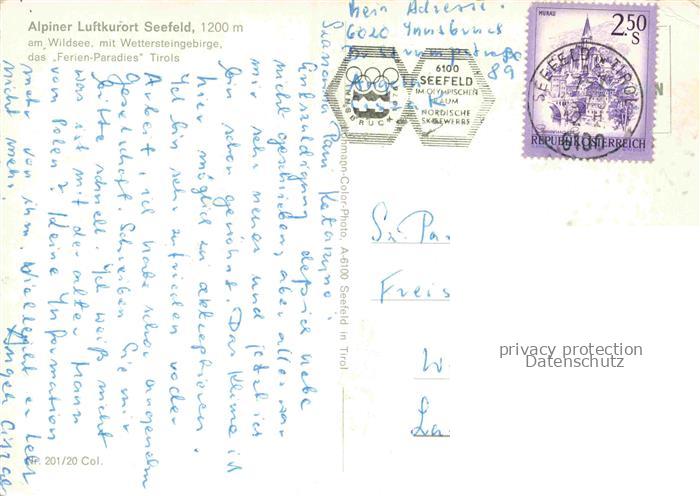 Alpiner Luftkurort Seefeld, 1200 m
am Wildsee, mit Wettersteingebirge,
das „Ferien-Paradies" Tirols
Mein Adresse:
6020 Innsbruck
89
INNSBRUCK
6100
SEEFELD
IM OLYMPISCHEN
RAUM
NORDISCHE
SKIBEWERBE
MURAU
2.50
S
SEEFELD IN TIROL
6100
REPUBLIK ÖSTERREICH
Pani Katarzyno!
Entschuldigung, daß ich habe
nicht geschrieben, aber alles war
mir sehr neues und jetzt ich
bin schon gewöhnt. Das Klima ist
hier möglich zu akzeptieren.
Ich bin sehr zufrieden von der
Arbeit, ich habe schon angenehm
Gesellschaft. Schreiben Sie mir
bitte schnell. Ich weiß nicht
was ist mit der alter Mann
vom Polen? Keine Information
mehr von ihm. Vielleicht er lebt
nicht mehr!
-Color-Photo, A-6100 Seefeld in Tirol
Sz. Pa
Freis
W
La
privacy protection
Datenschutz
Nr. 201/20 Col.